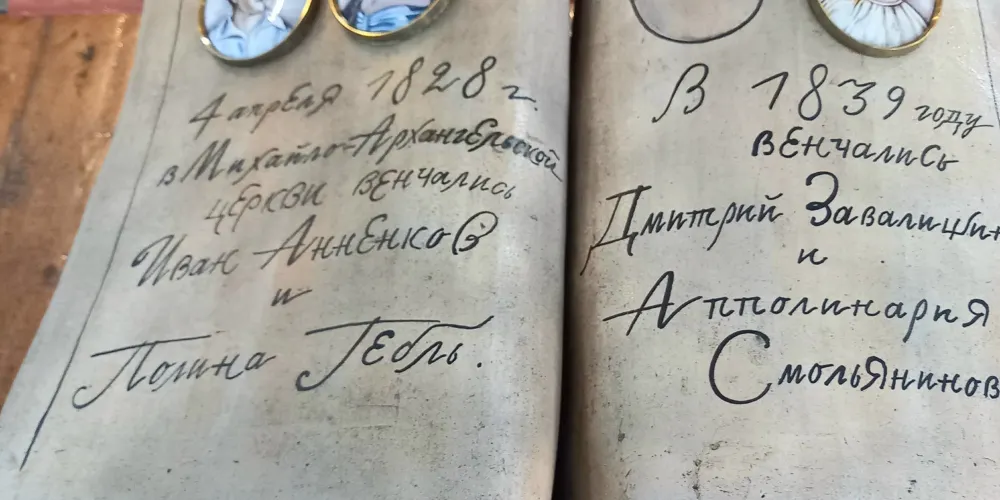 4 апреля 1828 г.
в Михайло-Архангельской
церкви венчались
Иван Анненков
и
Полина Гебль.
В 1839 году
венчались
Дмитрий Завалишин
и
Апполинария
Смольянинов